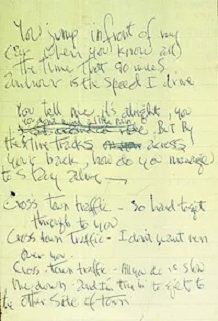 You jump in front of my
car when you know all
the time that 90 miles
an hour is the speed I drive
You tell me it's alright, you
But By
the tire tracks across
your back, how do you manage
to stay alive
Cross town traffic - So hard to get
through to you
Cross town Traffic - I don't want run
over you
Cross town traffic - All you do is slow
me down - and I'm tryin to get to
the other side of town